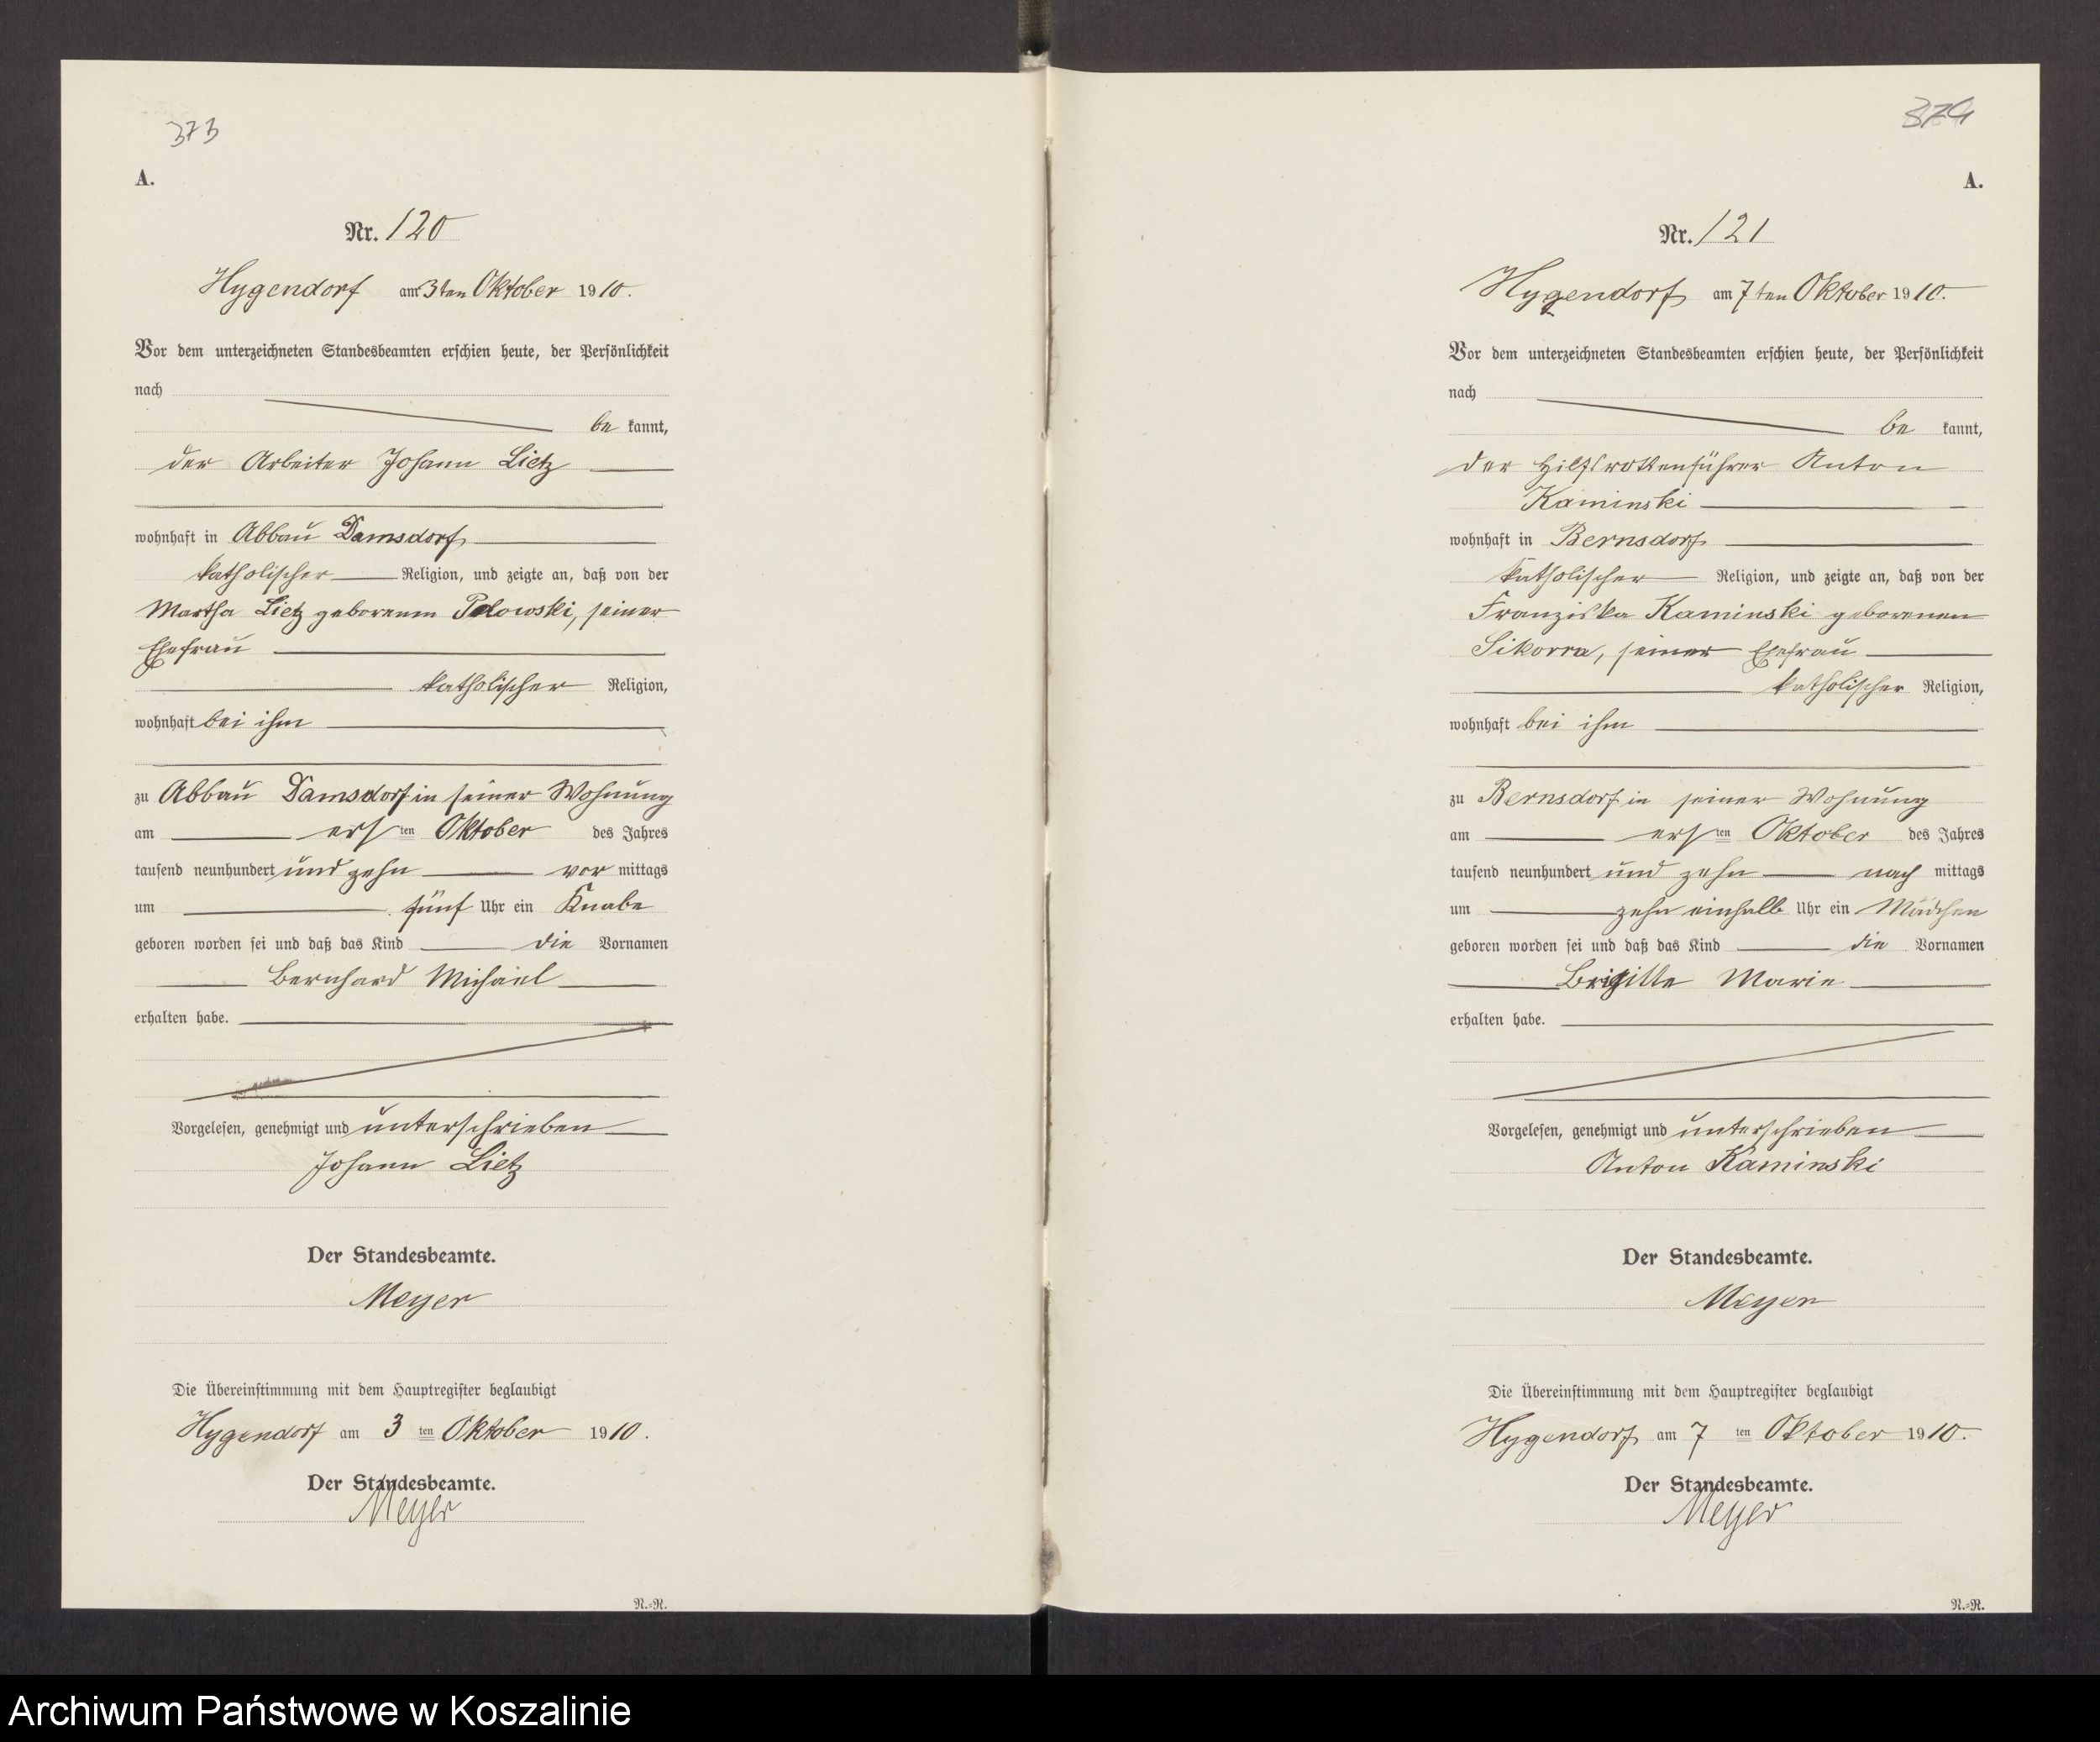 373
A.
Nr. 120
Hygendorf am 3ten Oktober 1910.
Vor dem unterzeichneten Standesbeamten erschien heute, der Persönlichkeit
nach
be kannt,
der Arbeiter Johann Lietz
wohnhaft in Abbau Damsdorf
katholischer Religion, und zeigte an, daß von der
Martha Lietz geborenen seiner
Ehefrau
katholischer Religion,
wohnhaft bei ihm
zu Abbau Damsdorf in seiner Wohnung
am ers ten Oktober des Jahres
tausend neunhundert und zehn vor mittags
um fünf Uhr ein Knabe
geboren worden sei und daß das Kind die Vornamen
Bernhard Michael
erhalten habe.
Vorgelesen, genehmigt und unterschrieben
Johann Lietz
Der Standesbeamte.
Meyer
Die Übereinstimmung mit dem Hauptregister beglaubigt
Hygendorf am 3 ten Oktober 1910.
Der Standesbeamte.
Meyer
R.=R.
374
A.
Nr. 121
Hygendorf am 7ten Oktober 1910.
Vor dem unterzeichneten Standesbeamten erschien heute, der Persönlichkeit
nach
be kannt,
der Hilfsrottenführer Anton
Kaminski
wohnhaft in Bernsdorf
katholischer Religion, und zeigte an, daß von der
Franziska Kaminski geborenen
Sikorra, seiner Ehefrau
katholischer Religion,
wohnhaft bei ihm
zu Bernsdorf in seiner Wohnung
am ers ten Oktober des Jahres
tausend neunhundert und zehn nach mittags
um zehn einhalb Uhr ein Mädchen
geboren worden sei und daß das Kind die Vornamen
Brigitte Marie
erhalten habe.
Vorgelesen, genehmigt und unterschrieben
Anton Kaminski
Der Standesbeamte.
Meyer
Die Übereinstimmung mit dem Hauptregister beglaubigt
Hygendorf am 7 ten Oktober 1910.
Der Standesbeamte.
Meyer
R.=R.
Archiwum Państwowe w Koszalinie